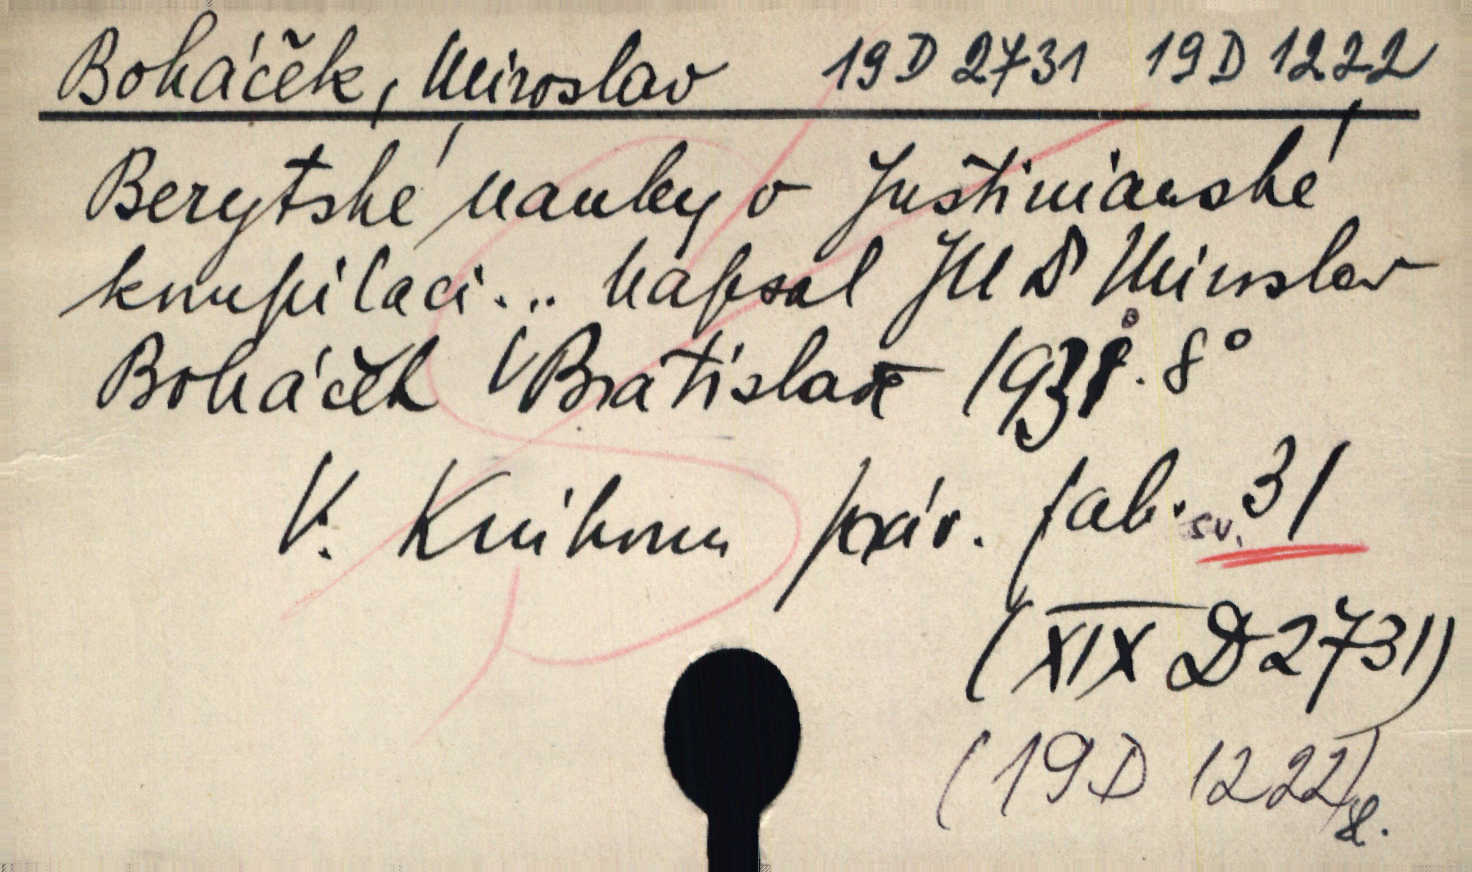 Boháček, Miroslav 19 D 2731 19 D 1222
Berytské nauky v Justiniánské
kompilaci... Napsal JUD Miroslav
Boháček V Bratislavě 8°
V. Knihovna práv. fak. sv. 31
(XIX D 2731)
(19 D 1222)